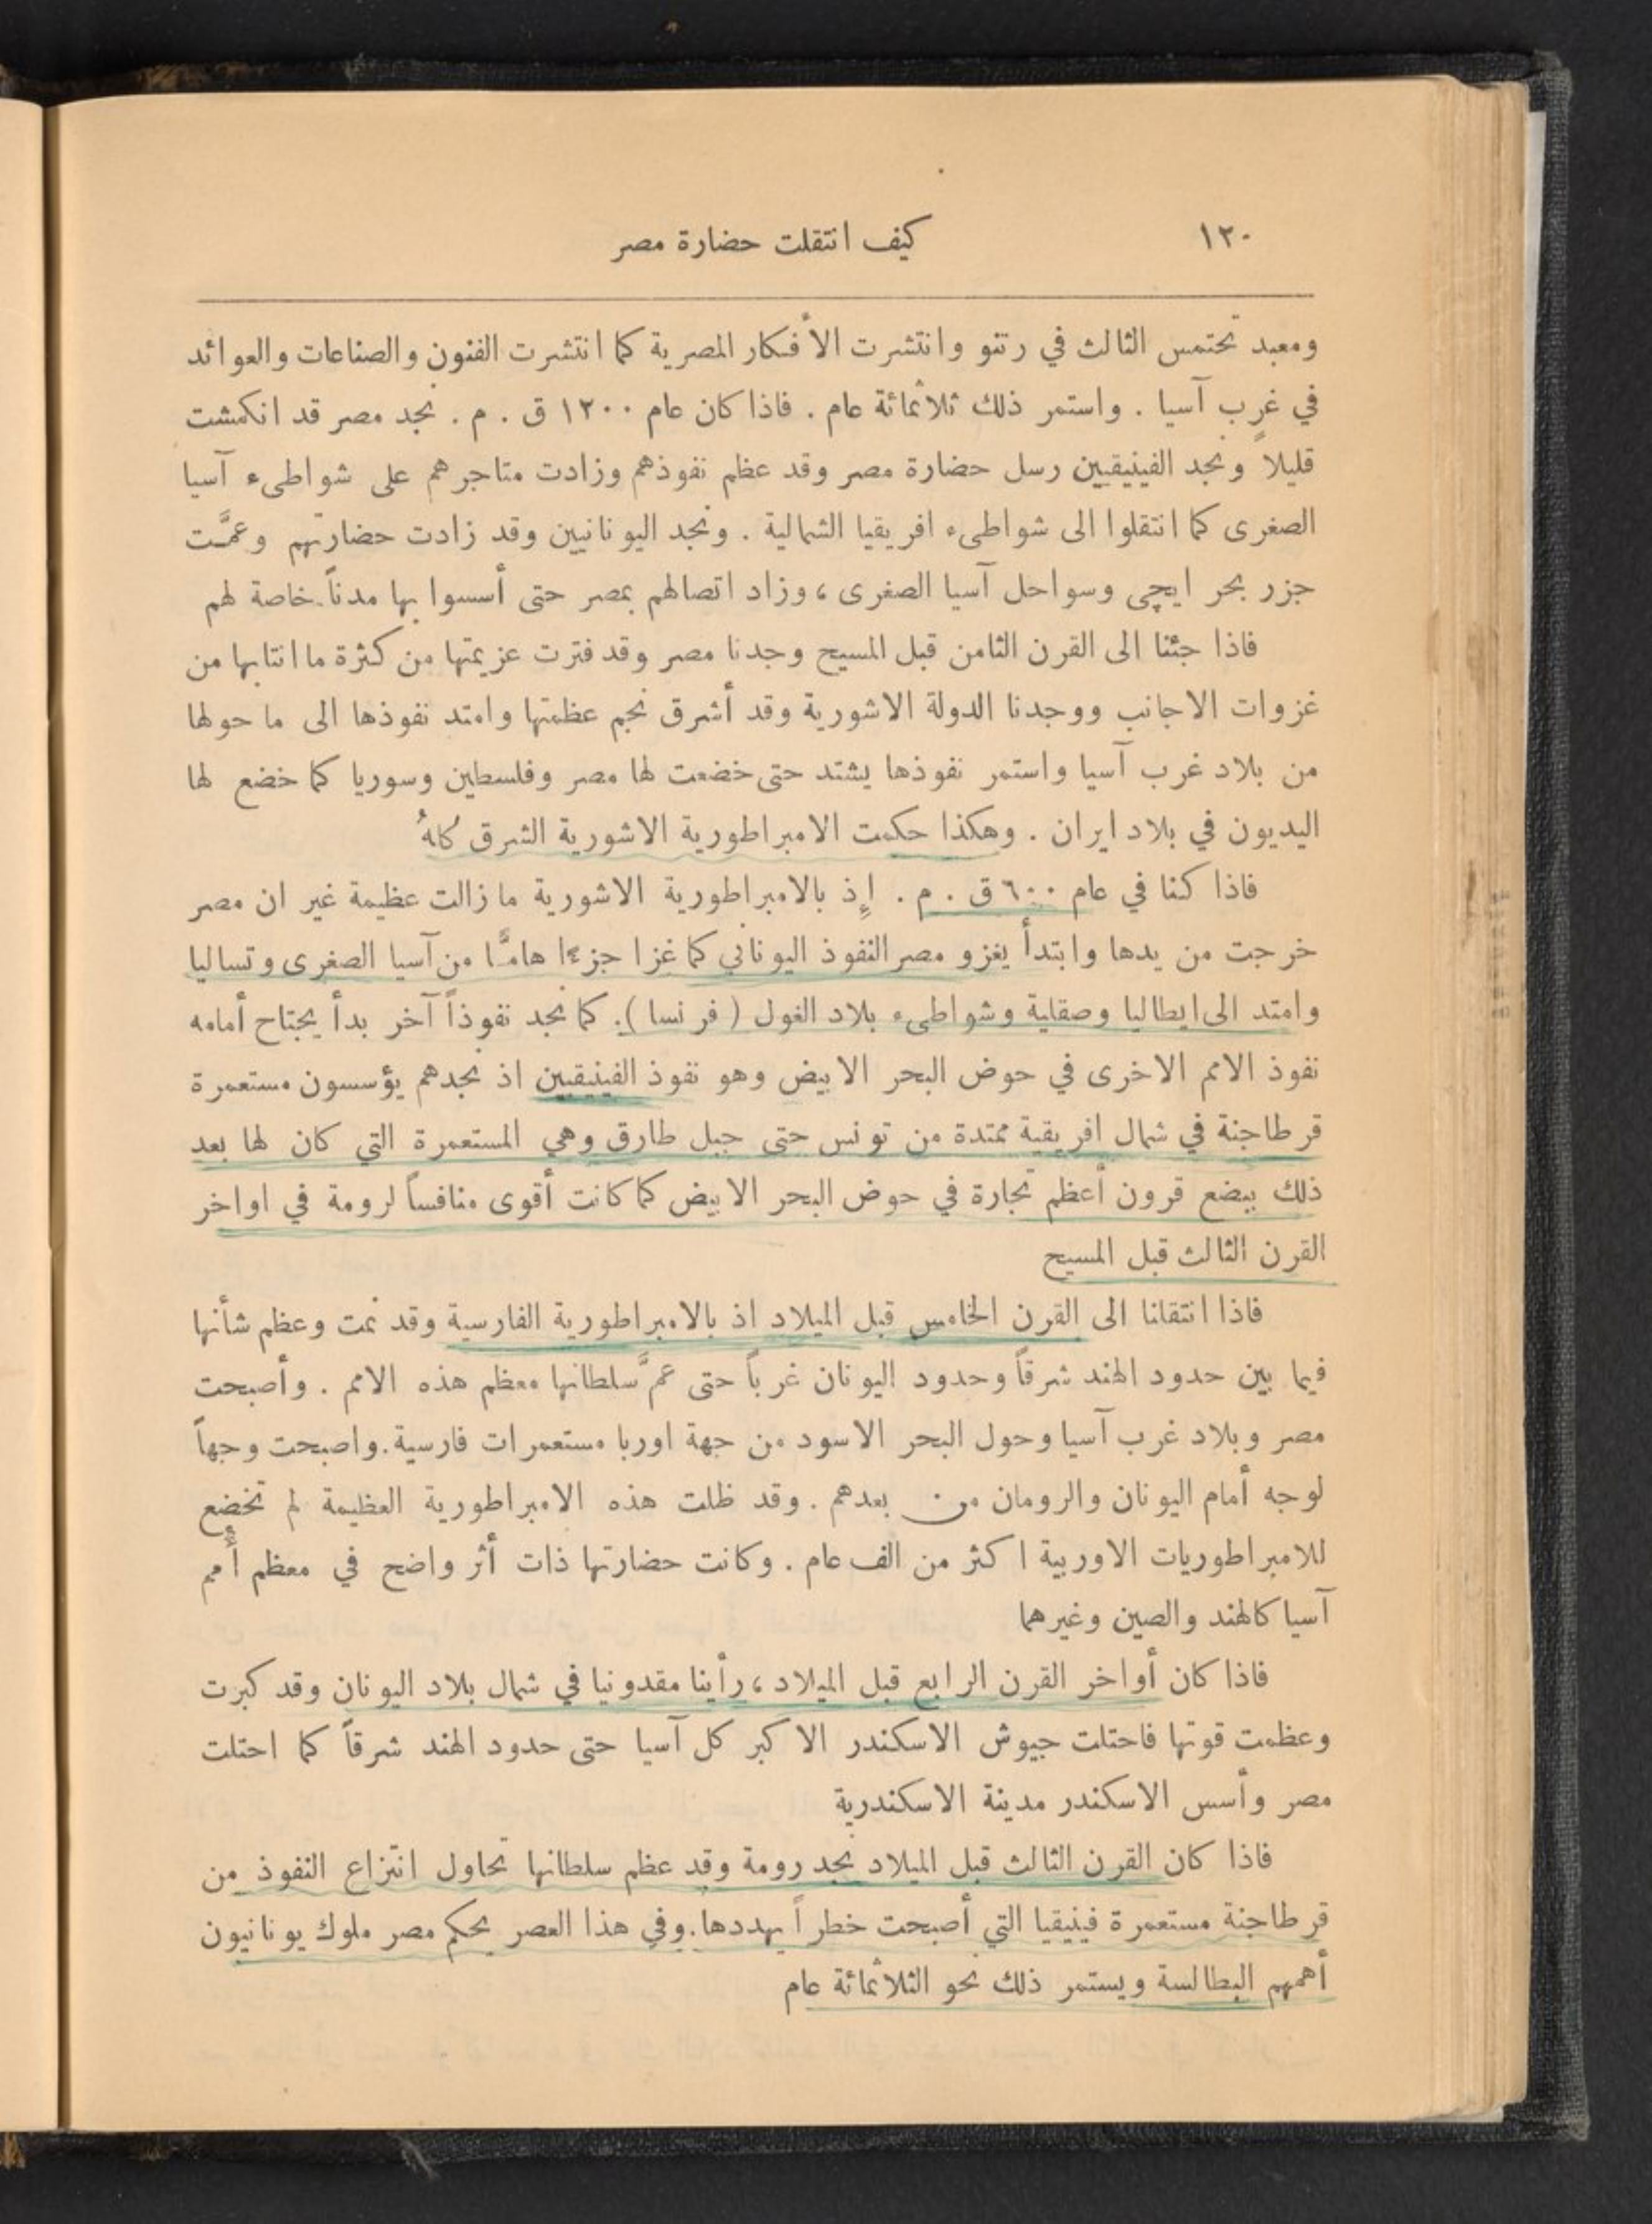 ١٢٠ كيف انتقلت حضارة مصر
ومعبد تحتمس الثالث في رتنو وانتشرت الأفكار المصرية كما انتشرت الفنون والصناعات والعوائد
في غرب آسيا . واستمر ذلك ثلاثمائة عام . فاذا كان عام ١٢٠٠ ق . م . نجد مصر قد انكمشت
قليلاً ونجد الفينيقيين رسل حضارة مصر وقد عظم نفوذهم وزادت متاجرهم على شواطىء آسيا
الصغرى كما انتقلوا الى شواطىء افريقيا الشمالية . ونجد اليونانيين وقد زادت حضارتهم وعمَّت
جزر بحر ايچى وسواحل آسيا الصغرى ، وزاد اتصالهم بمصر حتى أسسوا بها مدناً خاصة لهم
فاذا جئنا الى القرن الثامن قبل المسيح وجدنا مصر وقد فترت عزيمتها من كثرة ما انتابها من
غزوات الاجانب ووجدنا الدولة الاشورية وقد أشرق نجم عظمتها وامتد نفوذها الى ما حولها
من بلاد غرب آسيا واستمر نفوذها يشتد حتى خضعت لها مصر وفلسطين وسوريا كما خضع لها
اليديون في بلاد ايران . وهكذا حكمت الامبراطورية الاشورية الشرق كلهُ
فاذا كنا في عام ٦٠٠ ق . م . إِذ بالامبراطورية الاشورية ما زالت عظيمة غير ان مصر
خرجت من يدها وابتدأ يغزو مصر النفوذ اليوناني كما غزا جزءًا هامًّا من آسيا الصغرى وتساليا
وامتد الى ايطاليا وصقلية وشواطىء بلاد الغول ( فرنسا ). كما نجد نفوذاً آخر بدأ يجتاح أمامه
نفوذ الامم الاخرى في حوض البحر الابيض وهو نفوذ الفينيقيين اذ نجدهم يؤسسون مستعمرة
قرطاجنة في شمال افريقية ممتدة من تونس حتى جبل طارق وهي المستعمرة التي كان لها بعد
ذلك ببضع قرون أعظم تجارة في حوض البحر الابيض كما كانت أقوى منافساً لرومة في اواخر
القرن الثالث قبل المسيح
فاذا انتقلنا الى القرن الخامس قبل الميلاد اذ بالامبراطورية الفارسية وقد نمت وعظم شأنها
فيما بين حدود الهند شرقاً وحدود اليونان غرباً حتى عمَّ سلطانها معظم هذه الامم . وأصبحت
مصر وبلاد غرب آسيا وحول البحر الاسود من جهة اوربا مستعمرات فارسية. واصبحت وجهاً
لوجه أمام اليونان والرومان من بعدهم . وقد ظلت هذه الامبراطورية العظيمة لم تخضع
للامبراطوريات الاوربية اكثر من الف عام . وكانت حضارتها ذات أثر واضح في معظم أُمم
آسيا كالهند والصين وغيرهما
فاذا كان أواخر القرن الرابع قبل الميلاد ، رأينا مقدونيا في شمال بلاد اليونان وقد كبرت
وعظمت قوتها فاحتلت جيوش الاسكندر الاكبر كل آسيا حتى حدود الهند شرقاً كما احتلت
مصر وأسس الاسكندر مدينة الاسكندرية
فاذا كان القرن الثالث قبل الميلاد نجد رومة وقد عظم سلطانها تحاول انتزاع النفوذ من
قرطاجنة مستعمرة فينيقيا التي أصبحت خطراً يهددها. وفي هذا العصر يحكم مصر ملوك يونانيون
أهمهم البطالسة ويستمر ذلك نحو الثلاثمائة عام